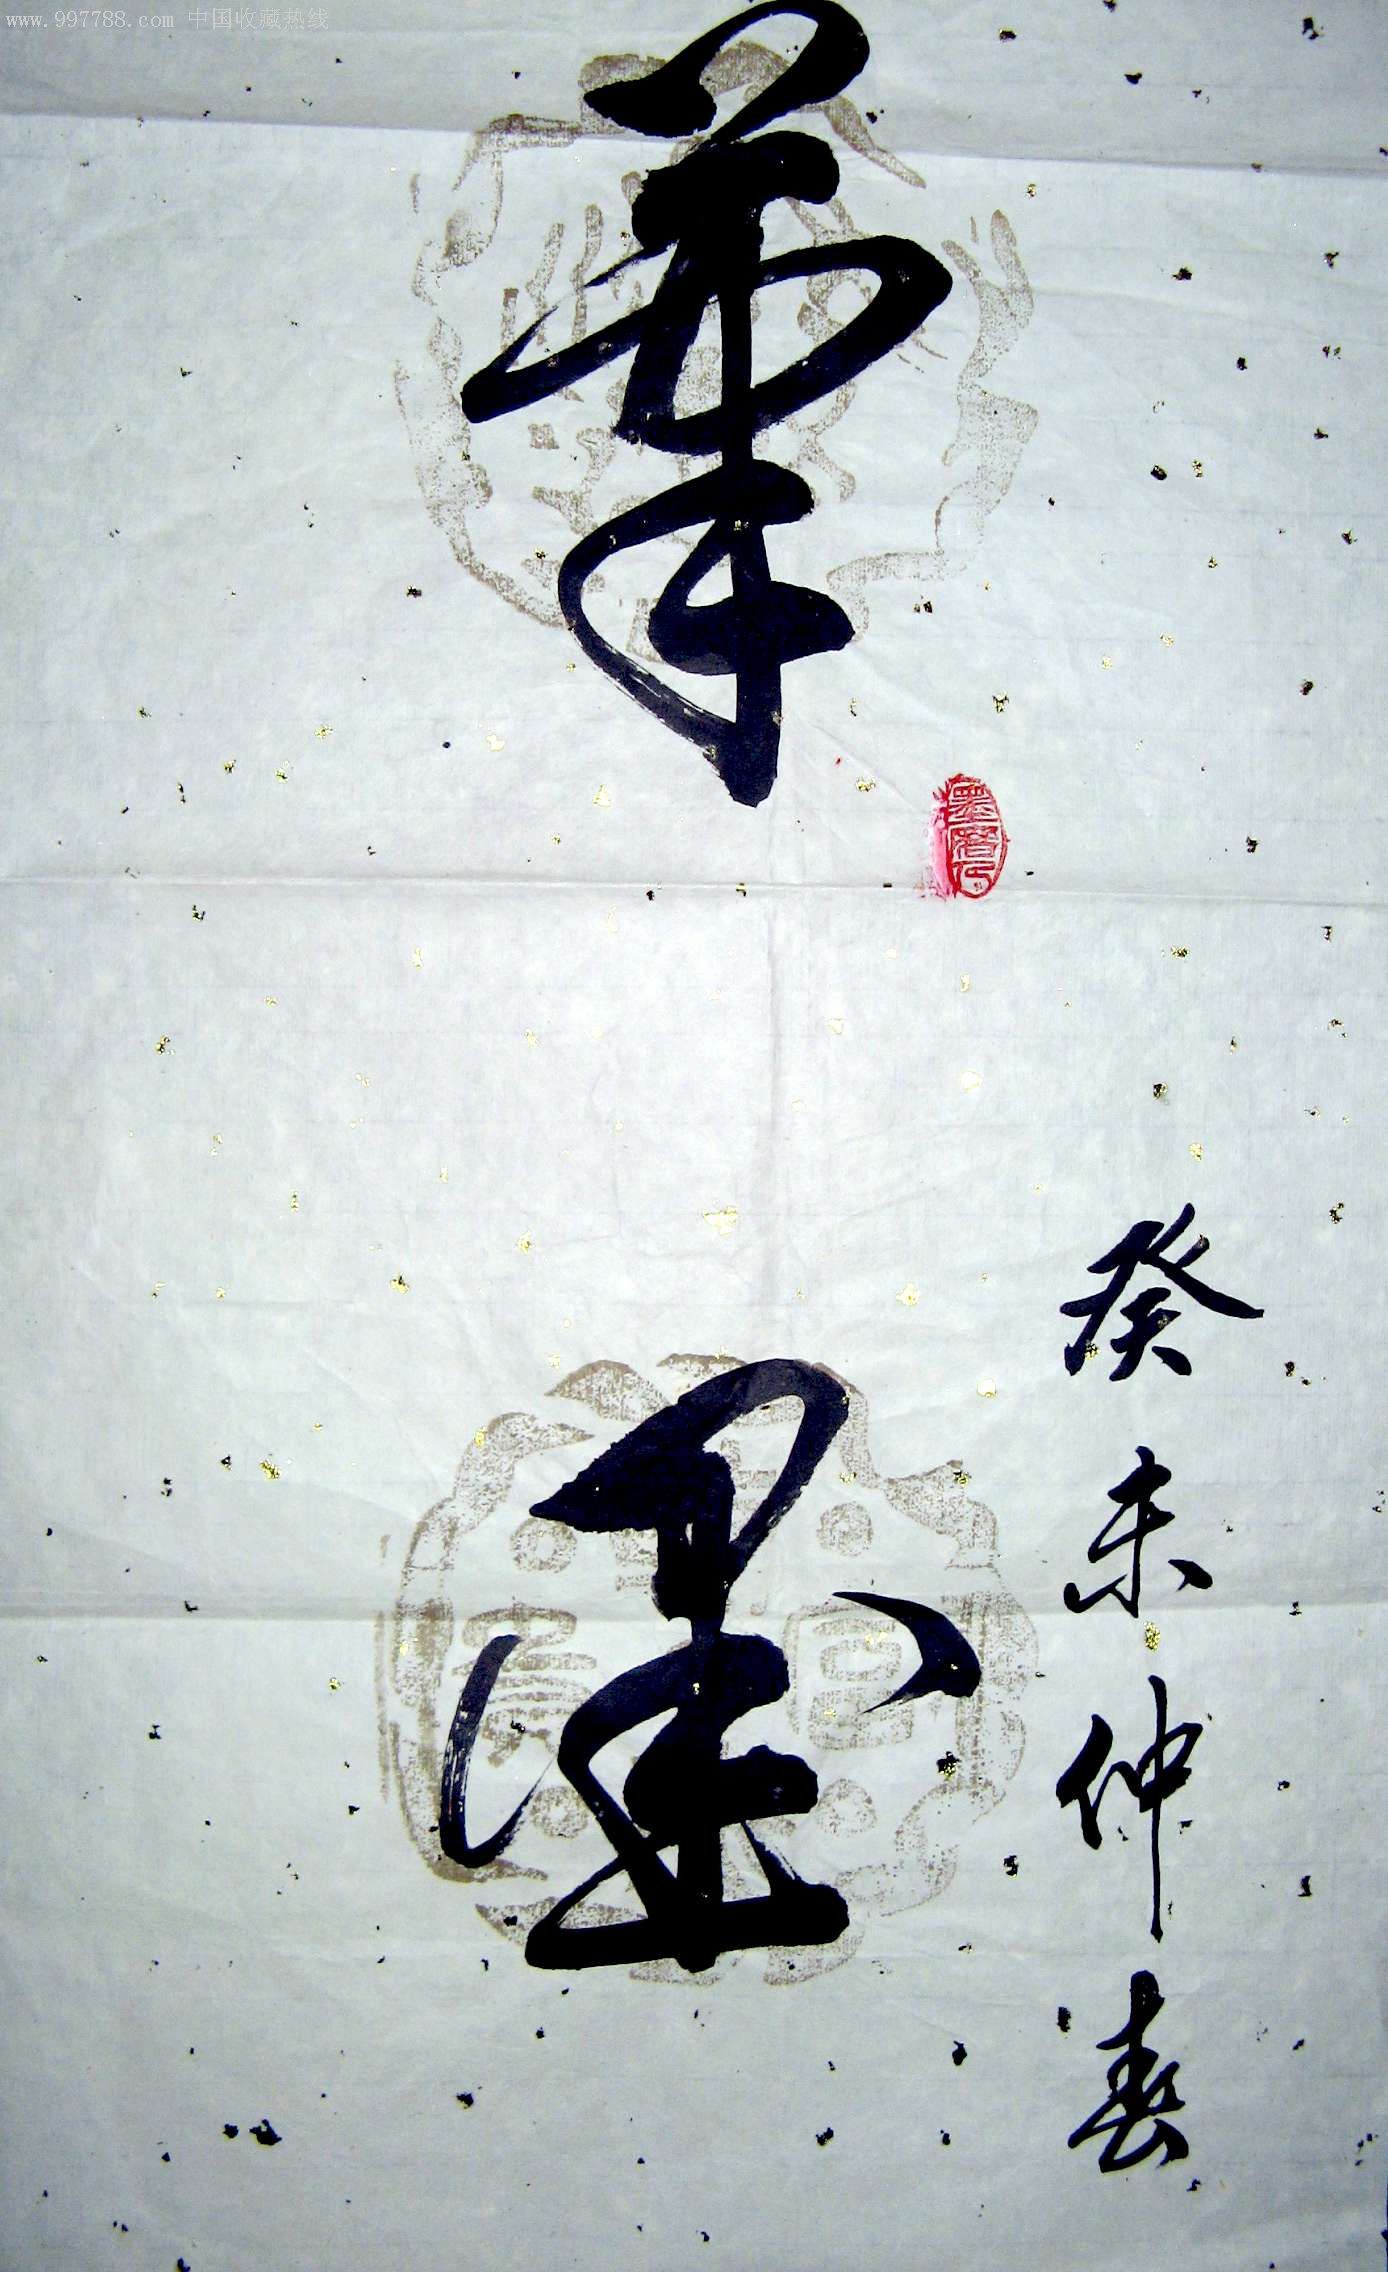 www.997788.com 中国收藏热线
癸未仲春
笔
墨